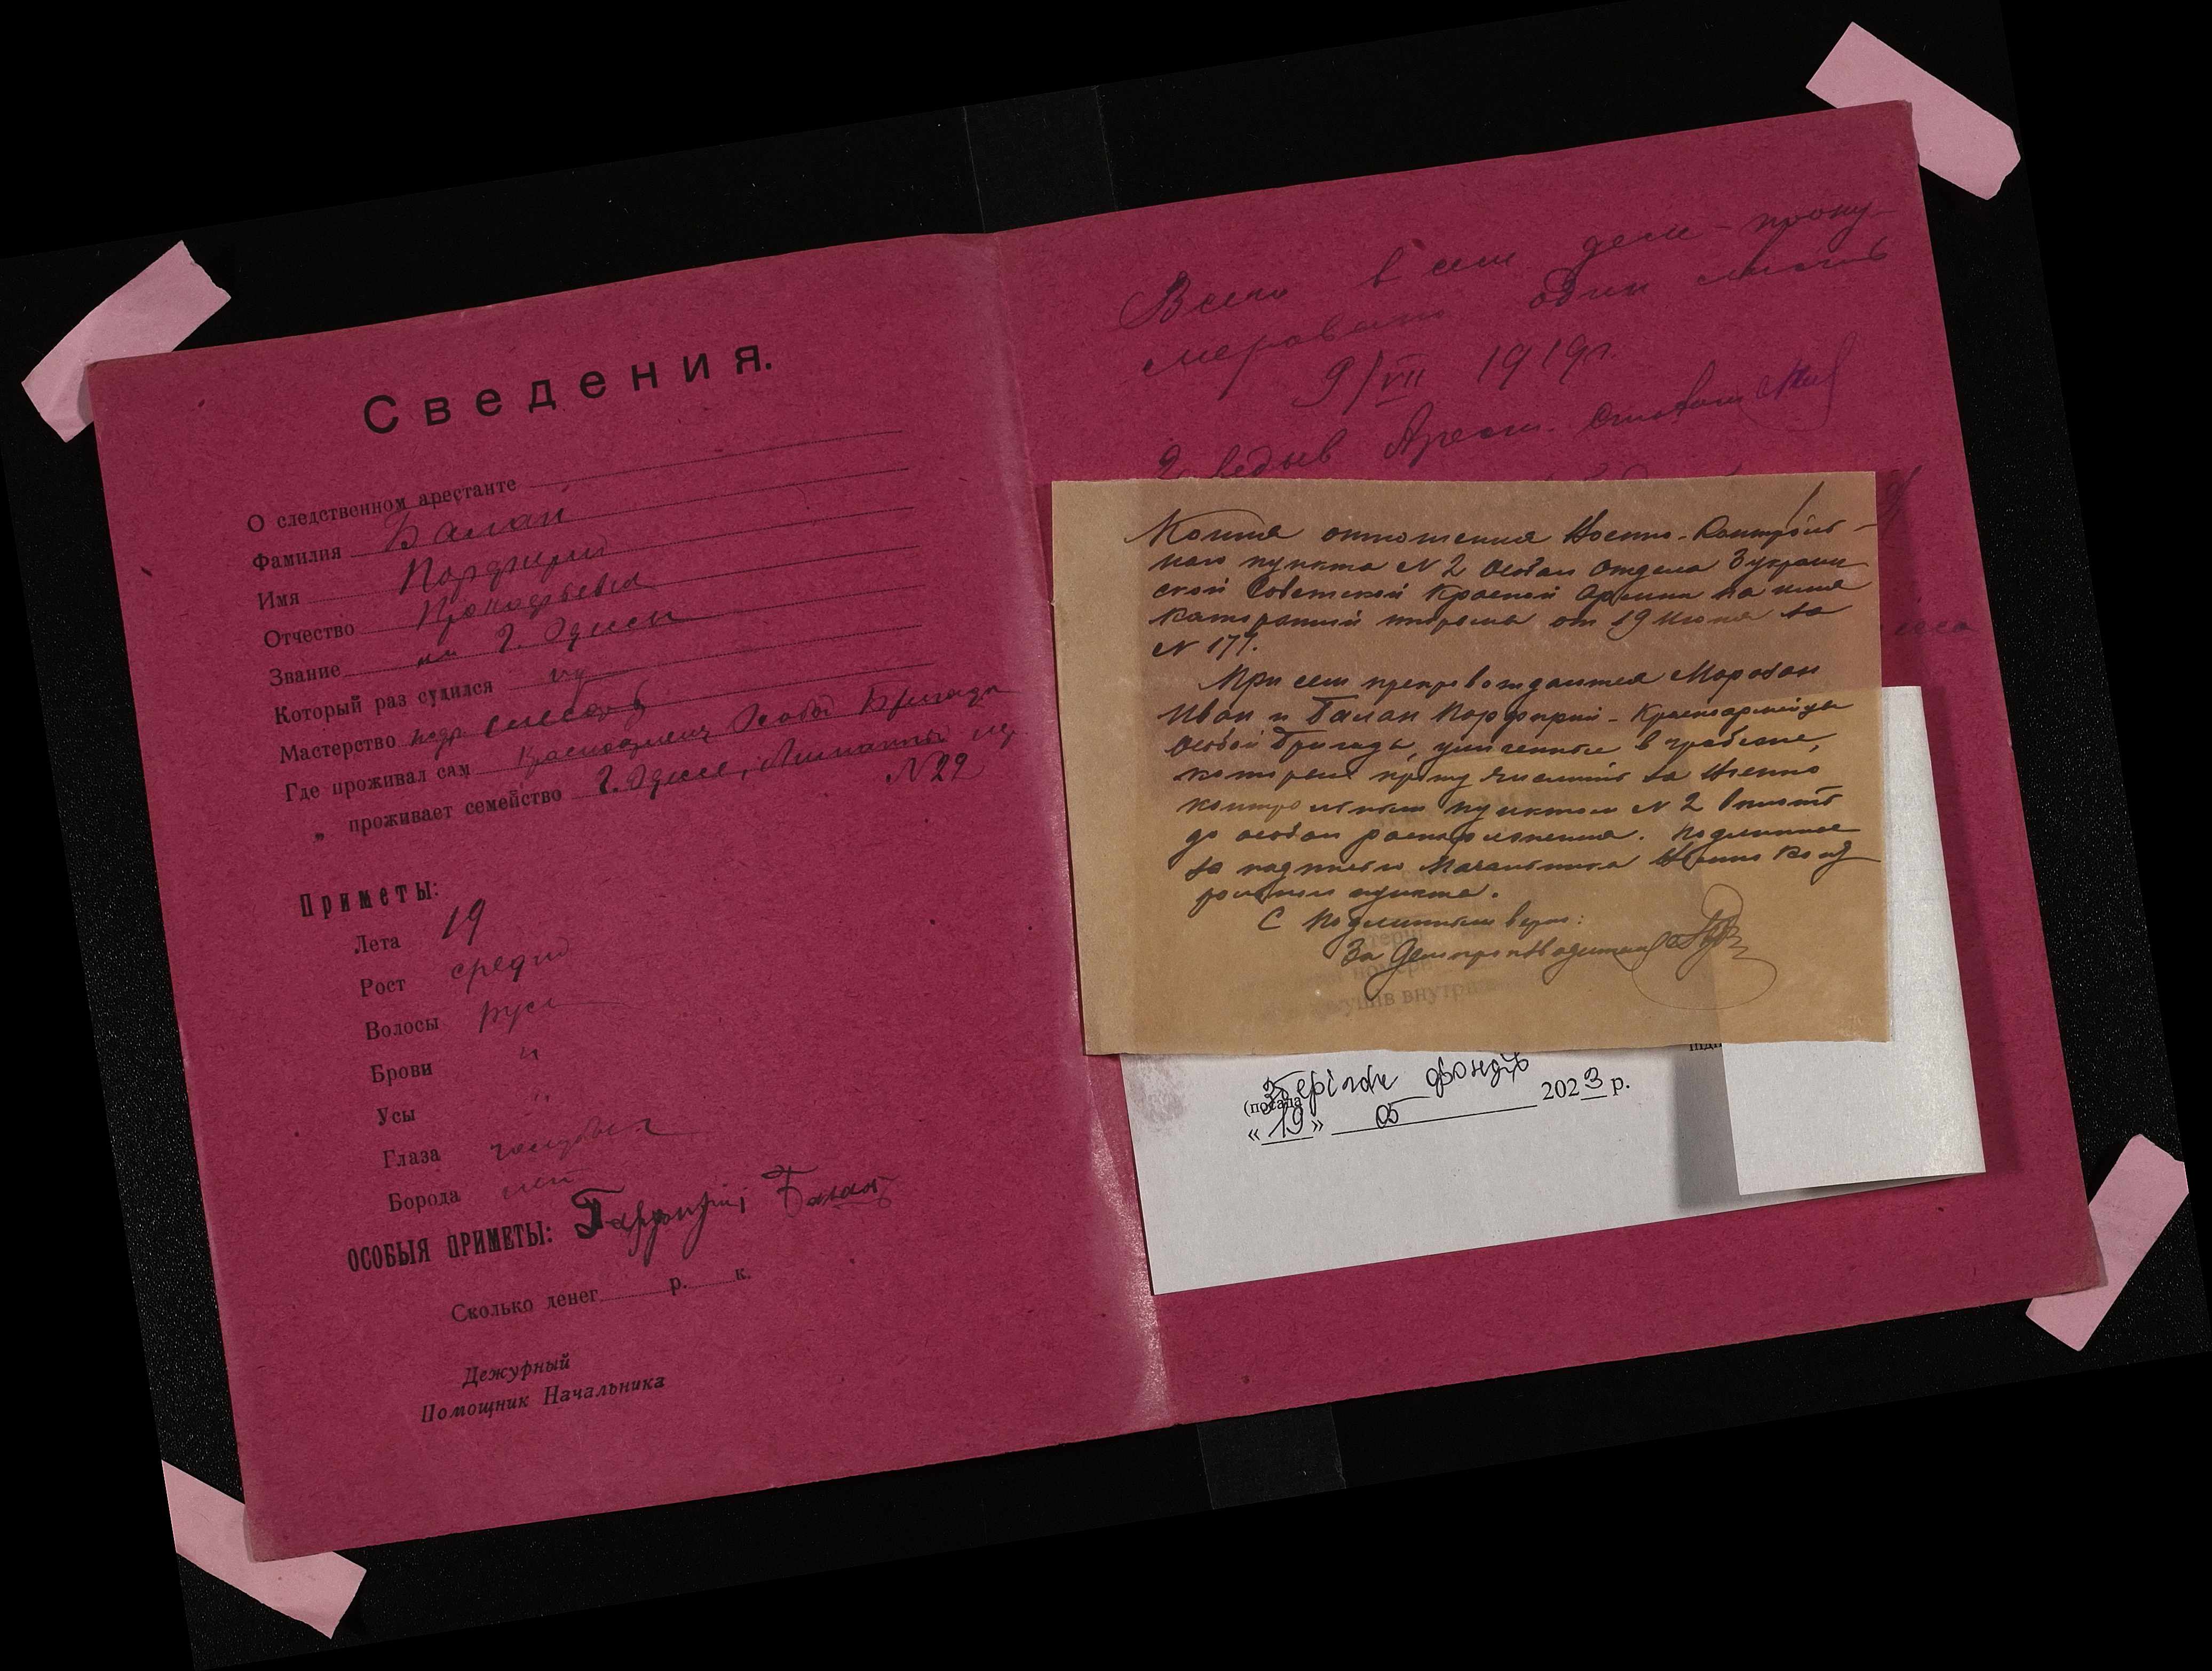 Сведения.
О следственном арестанте
Фамилия Балан
Имя Порфирий
Отчество Прокофьевич
Звание г. Одессы
Который раз судился
Мастерство
Где проживал сам красноармеец Особой Бригады
" проживает семейство г. Одесса,
N 29
Приметы:
Лета 19
Рост средний
Волосы русы
Брови "
Усы "
Глаза голубые
Борода нет
ОСОБЫЯ ПРИМЕТЫ: Балан
Сколько денег р. к.
Дежурный
Помощник Начальника
Всего в сем деле прону-
меровано один листъ
9/VII 1919г.
Арест.
Копия отношения Военно-Контроль-
наго пункта N 2 Особаго Отдела 3 украин
ской Советской Красной Армии на имя
каторжной тюрьмы от 19 Июня за
N 177.
При сем препровождаются Морозан
Иван и Балан Порфирий - Красноармейцы
Особой Бригады, уличенные в грабеже,
которых прошу зачислить за Военно
контрольным пунктом N 2 впредь
до особаго распоряжения. Подлинное
за подписью Начальника Военно Конт
рольнаго пункта.
С Подлинным верно:
За Делопроизводителя
внутр
Зберігач фондів
(посада
« 19 » 05 2023 р.